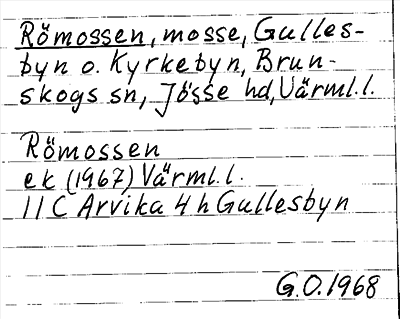 Römossen, mosse, Gulles-
byn o. Kyrkebyn, Brun-
skogs sn, Jösse hd, Värml.l.
Römossen
ek (1967) Värml.l.
11 C Arvika 4 h Gullesbyn
G.O. 1968